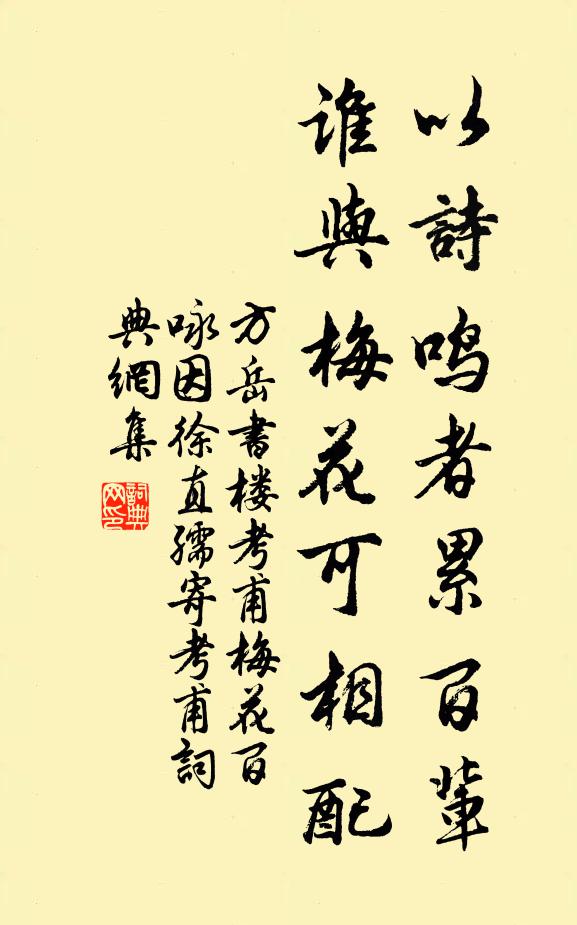 以詩鳴者累百輩
誰與梅花可相配
方岳書楼考甫梅花百
咏因徐直孺寄考甫詞
典網集
詞典
网印